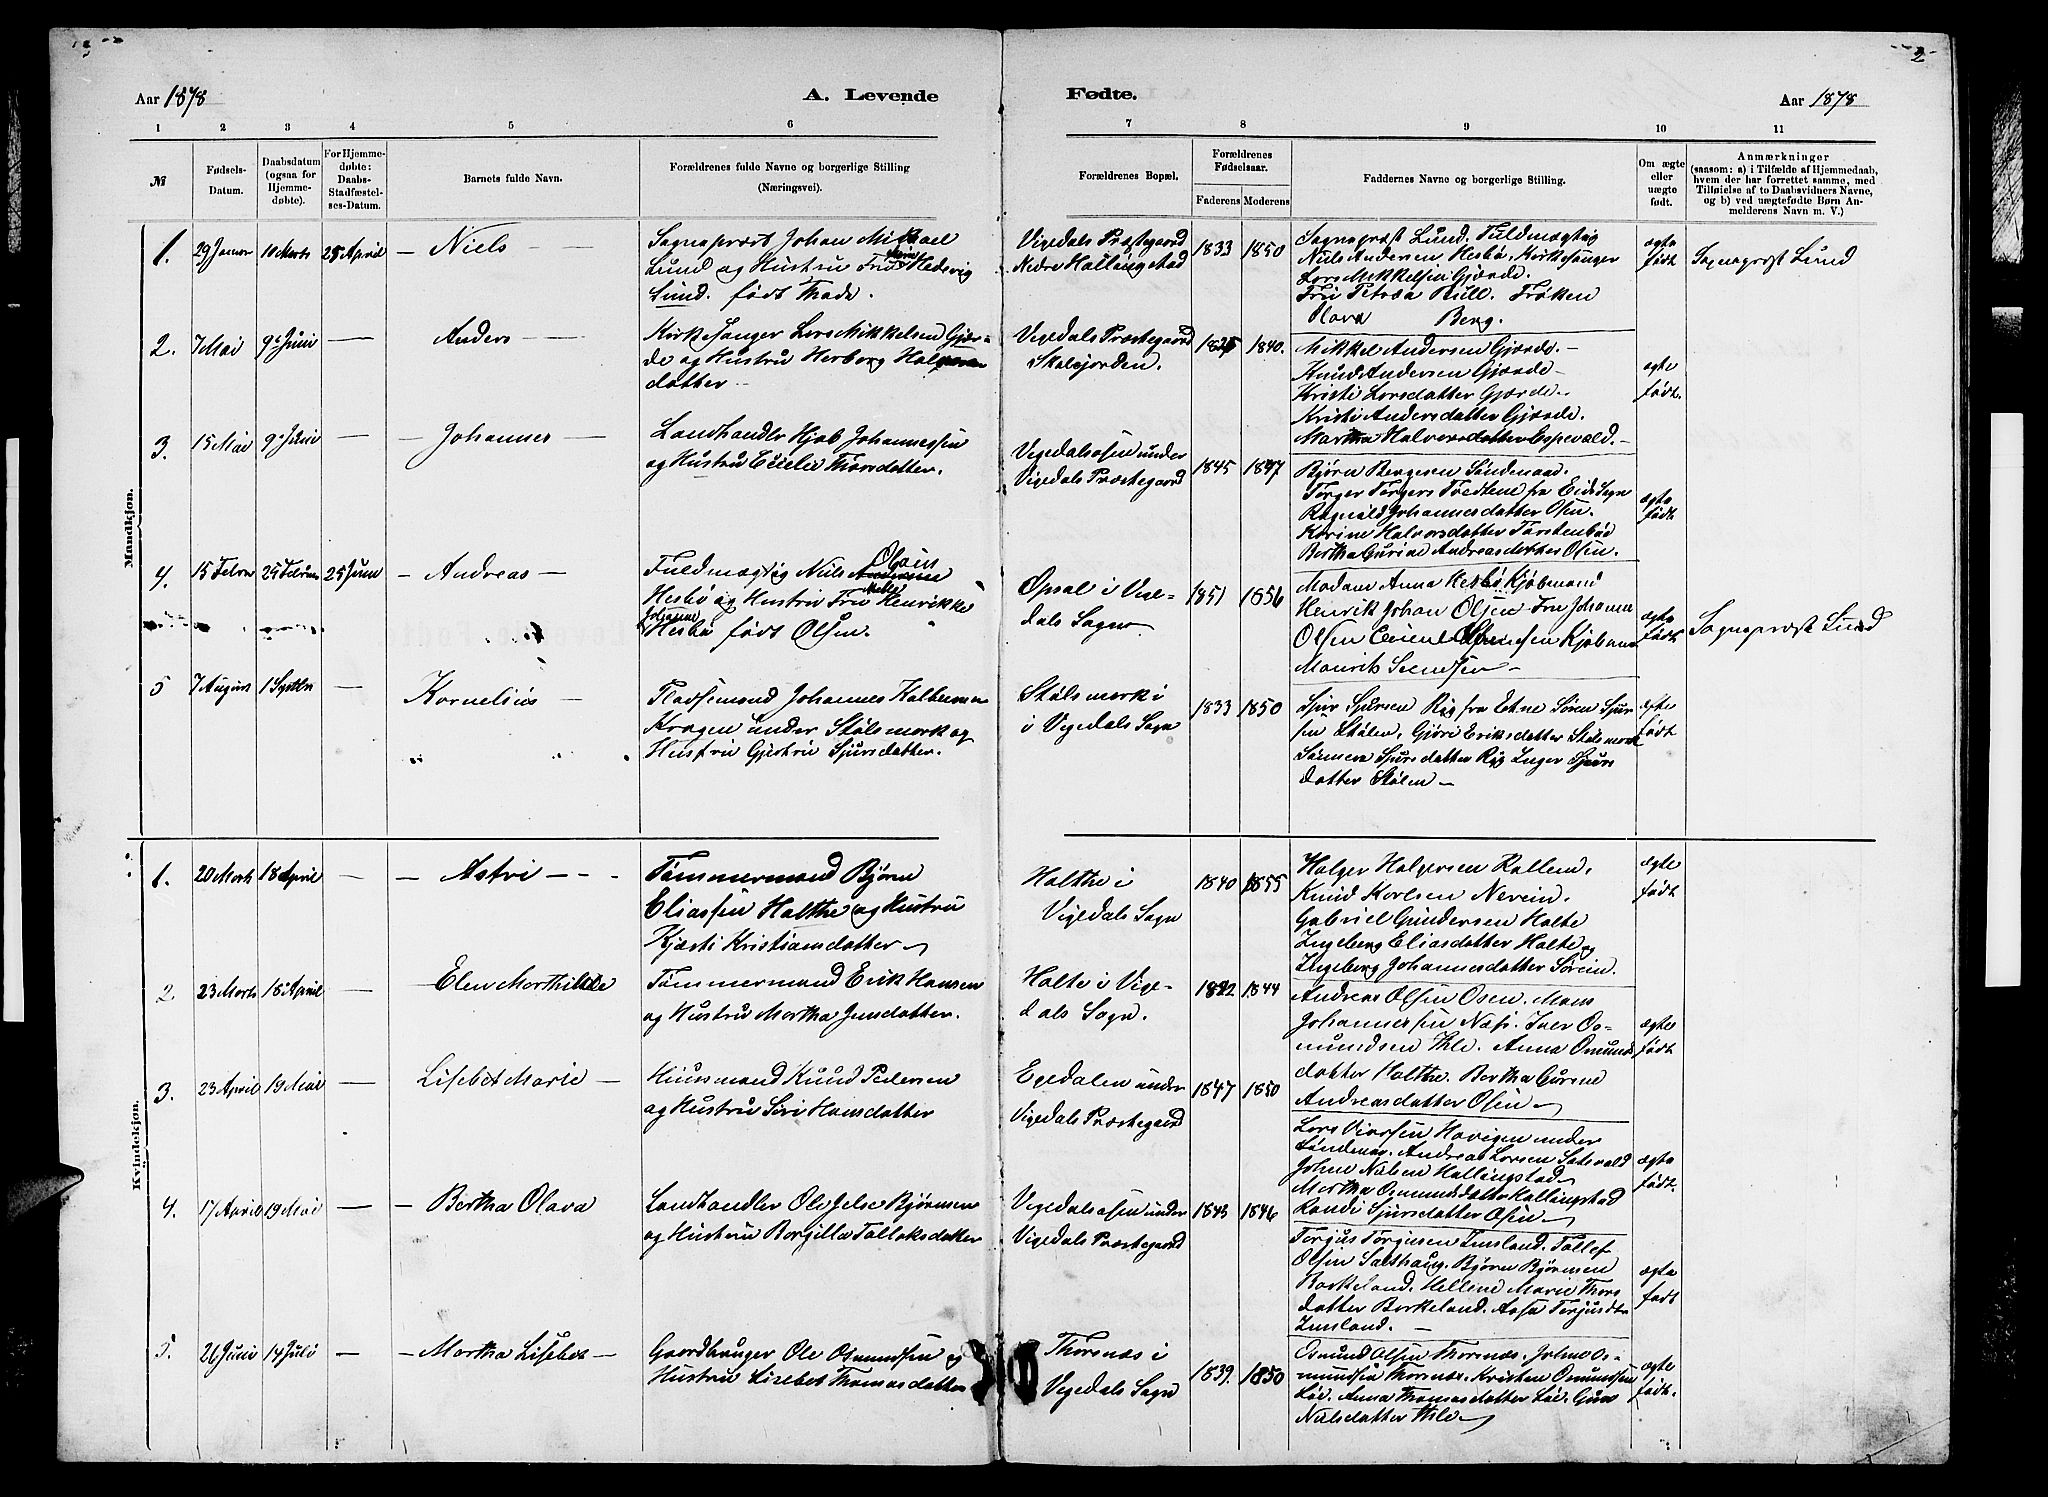 2
Aar 1878
A. Levende
Fødte.
Aar 1878
1 2 3 4 5 6
7 8 9 10 11
№
Fødsels-
Datum.
Daabsdatum
(ogsaa for
Hjemme-
døbte).
For Hjemme-
døbte:
Daabs-
Stadfæstel-
ses-Datum.
Barnets fulde Navn.
Forældrenes fulde Navne og borgerlige Stilling
(Næringsvei).
Forældrenes Bopæl.
Forældrenes
Fødselsaar.
Faderens Moderens
Faddernes Navne og borgerlige Stilling.
Om ægte
eller
uægte
født.
Anmærkninger
(saasom: a) i Tilfælde af Hjemmedaab,
hvem der har forrettet samme, med
Tilføielse af to Daabsvidners Navne,
og b) ved uægtefødte Børn An-
melderens Navn m. V.)
Mandkjøn.
1. 29 Januar 10 Marts 28 April — Niels — —
Sognepræst Johan Mikael
Lund og Hustru Fru Hedevig
Lund. født Thade.
Vigedals Præstegaard
Nedre Hallingstad
1833 1850
Sognepræst Lund. Fuldmægtig
Niels Andersen Hesbø. Kirkesanger
Lars Mikkelsen Gjærde.
Fru Petrea Bull. Frøken
Olava Berg.
ægte
født
Sognepræst Lund
2. 7 Mai 9de Juni — Anders —
Kirkesanger Lars Mikkelsen Gjær-
de og Hustru Herborg
datter
Vigedals Præstegaard
Skolejorden.
1840.
Mikkel Andersen Gjærde. —
Knud Andersen Gjærde —
Kristi Larsdatter Gjærde.
Kristi Andersdatter Gjærde.
Martha Halvorsdatter Espevold. —
ægte
født.
3. 15 Mai 9de Juni — — Johannes —
Landhandler Hjab Johannessen
og Hustru Cicilie Thorsdatter.
Vigedalsosen under
Vigedals Præstegaard
1845 1847
Bjørn Bergesen Søndenaa.
Torger Torgers Tvedtene fra Eids Sogn
Ragnild Johannesdatter Osen.
Karine Halvorsdatter Torstenbøe
Bertha Gurine Andreasdatter Osen.
ægte
født
4. 15 Febru 25 Februar 25 Juni — Andreas —
Fuldmægtig Niels Olaus
Hesbø og Hustru Fru Henrikke
Johanne
Hesbø født Olsen.
Opsal i Vige-
dals Sogn
1851 1856
Madam Anna Hesbø Kjøbmand
Henrik Johan Olsen. Fru Johanne
Olsen
Maurits Svendsen —
ægte
født
Sognepræst Lund
5 7 August 1 Septbr — Kornelius —
Pladsemand Johannes
Kragen under Stølsmark og
Hustru Gjertru Sjursdatter.
Stølsmark i
i Vigedals Sogn
1833 1850
Sjur Sjursen Rig fra Etne Søren Sjur-
sen Stølen, Gjøri Eriksdatter Stølsmark
Sjursdatter Rig Inger Sjurs
datter Stølen —
ægte
født
Kvindekjøn.
1. 20 Marts 18 April — — Astri — — —
Tømmermand Bjørn
Eliassen Halthe og Hustru
Kjersti Kristiansdatter
Halthe i
Vigedals Sogn
1840 1855
Holger Holgersen Kallem.
Knud Karlsen Nerein.
Gabriel Gundersen Halte
Ingeborg Eliasdatter Halte og
Ingeborg Johannesdatter Sørein.
ægte
født
2 23 Marts 18de April — Elen Marthilde
Tømmermand Erik Hansen
og Hustru Martha Jensdatter.
Halte i Vige-
dals Sogn.
1822 1844
Andreas Olsen Osen. Mons
Johannessen Næs. Iver Os-
mundsen Thle. Anna Osmunds
datter Halthe. Bertha Gurine
Andreasdatter Osen
ægte
født
3. 23 April 19 Mai — Lisebet Marie —
Huusmand Knud Pedersen
og Hustru Siri Hansdatter
Egedalen under
Vigedals Præstegaard
1847 1850
Lars Havigen under
Søndenaa. Andreas Larsen
Johan Nielsen Hallingstad
Martha Osmundsdatter Hallingstad
Randi Sjursdatter Osen
ægte
født.
4. 17 April 19 Mai — — Bertha Olava
Landhandler Ole Jelse Bjørnsen
og Hustru Borgille Tolloksdatter
Vigedalsosen under
Vigedals Præstegaard
1843 1846
Torgius Torgiesen Imsland. Tollef
Olsen Salthaug. Bjørn Bjørnsen
Borkeland. Hellene Marie Thors
datter Borkeland. Aasa Terjusdtr
Imsland. —
ægte
født
5. 26 Juni 14 Juli — — Martha Lisebet —
Gaardbruger Ole Osmundsen og
Hustru Lisebet Thomasdatter
Thorsnæs i
Vigedals Sogn
1839. 1850
Osmund Olsen Thorsnæs. Johne Os-
mundsen Thorsnæs. Kristen Osmundsen
Løe. Anna Thomasdatter Løe. Guro
Nielsdatter Thle
ægte
født.